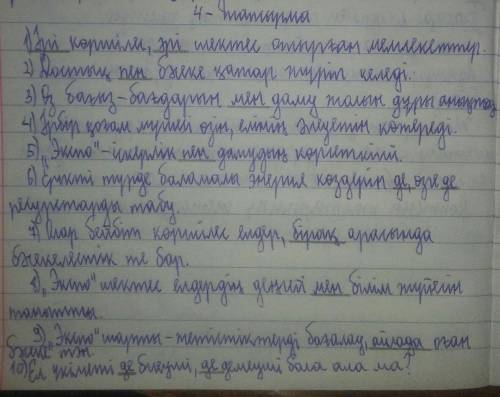 4-тапсырма
1) Әрі көршілес, әрі шектес отырған мемлекеттер.
2) Достық пен бәсеке қатар жүріп келеді.
3) Өз бағыз-бағдарын мен даму жолын дұрыс анықтау
4) Әрбір қоғам мүшесі өзін, елінің әлеуетін көтереді.
5) „Экспо"-іскерлік пен дамудың көрсеткіші.
6) Ерікті түрде баламалы энергия көздерін де, өзге де
ресурстарды табу.
7) Олар бейбіт көршілес елдер, бірақ арасында
бәсекелестік те бар.
8) „Экспо" шектес елдердің деңгейі мен білім жүйесін
танытты.
9) „Экспо" шарты-жетістіктерді бағалау, ойлада оған
баға
10) Ел үкіметі де билеуші, де демеуші бола ала ма?